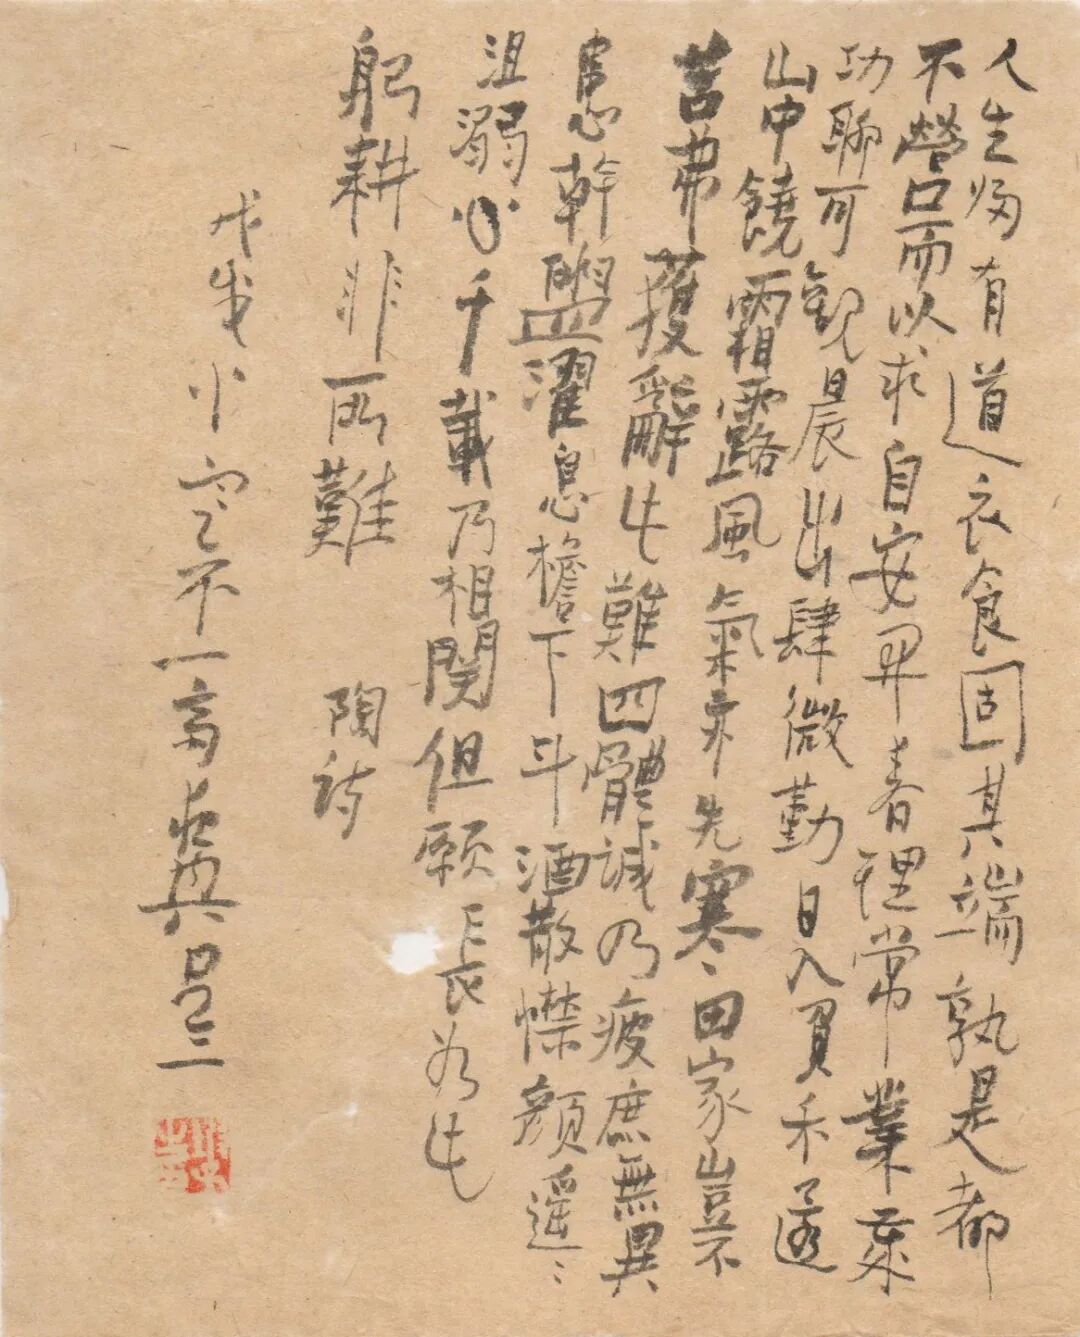 人生歸有道衣食固其端孰是都
不營而以求自安開春理常業歲
功聊可觀晨出肆微勤日入負禾還
山中饒霜露風氣亦先寒田家豈不
苦弗獲辭此難四體誠乃疲庶無異
患幹盥濯息檐下斗酒散襟顏遥〻
沮溺心千載乃相関但願長如此
躬耕非所難 陶詩
戊戌小不一